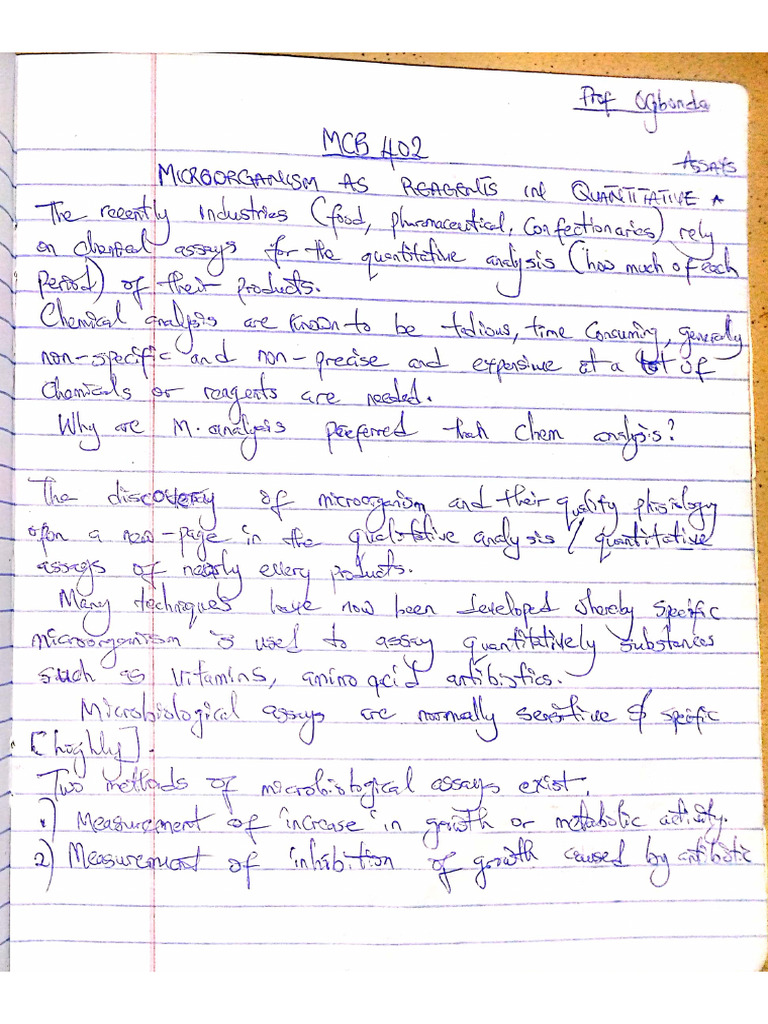 Prof Ogbonda
MCB 402
MICROORGANISM AS REAGENTS IN QUANTITATIVE ASSAYS
The recently industries (food, pharmaceutical, Confectionaries) rely
on chemical assays for the quantitative analysis (how much of each
period) of their products.
Chemical analysis are known to be tedious, time consuming, generally
non-specific and non-precise and expensive at a lot of
chemicals or reagents are needed.
Why are M. analysis preferred than chem analysis?
The discovery of microorganism and their quality physiology
open a new-page in the qualitative analysis / quantitative
assays of nearly every products.
Many techniques have now been developed whereby specific
microorganism is used to assay quantitatively substances
such as vitamins, amino acid antibiotics.
Microbiological assays are normally sensitive & specific
[highly].
Two methods of microbiological assays exist.
1) Measurement of increase in growth or metabolic activity.
2) Measurement of inhibition of growth caused by antibiotic